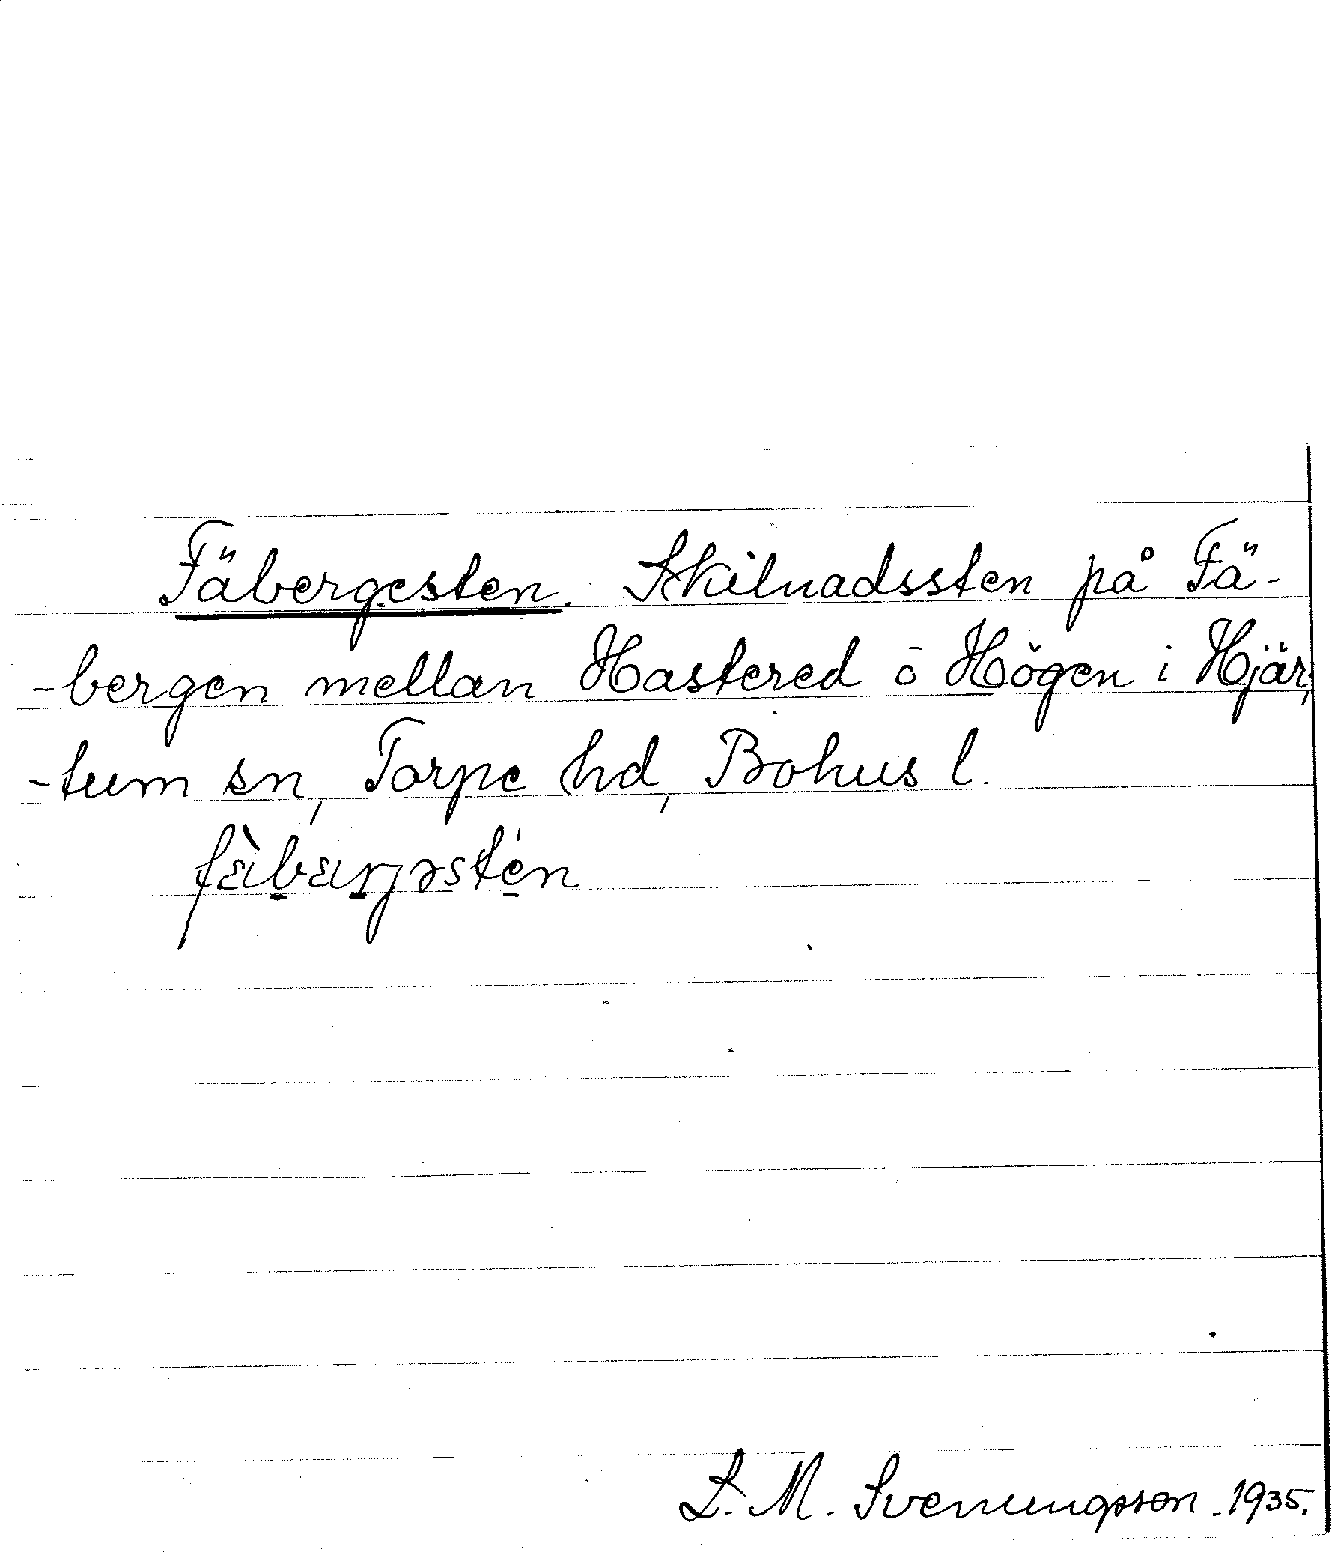 Fäbergesten. Skilnadssten på Fä-
-bergen mellan Hastered o Högen i Hjär,
-tum sn, Torpe hd, Bohus l.
fä̀bærjəstén
S. M. Svenungsson. 1935.